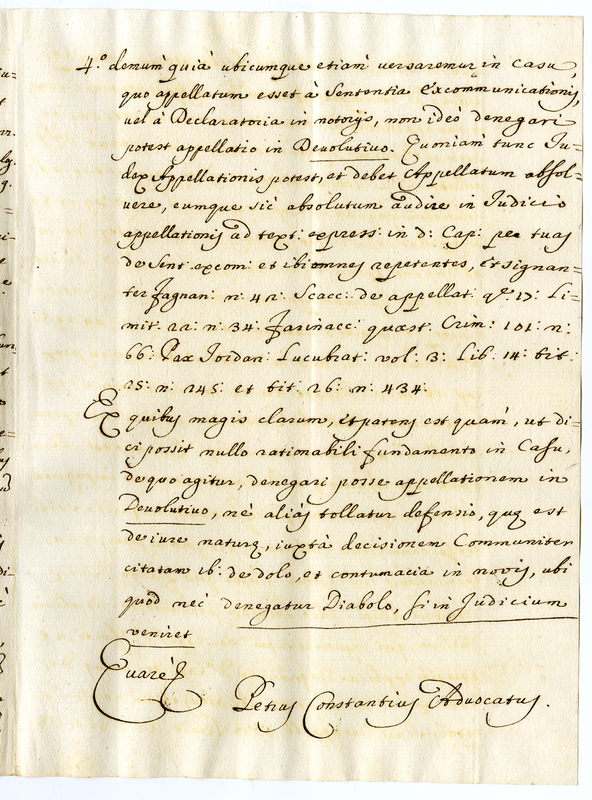 4.º demum quia ubicumque etiam versaremur in Casu,
quo appellatum esset à Sententia excommunicationis,
vel à Declaratoria in notorijs, non ideò denegari
potest appellatio in Devolutivo. Quoniam tunc Ju=
dex Appellationis potest, et debet Appellatum absol=
vere, eumque sic absolutum audire in Judicio
appellationis ad text: express: in d: Cap: per tuas
de Sent: excom: et ibi omnes repetentes, et signan=
ter Fagnan: n: 42: Scacc: de appellat: qe. 17: Li=
mit: 22: n: 34: Farinacc: quæst: Crim: 101: n:
66: Pax Jordan: Lucubrat: vol: 3: Lib: 14: tit:
25: n: 245: et tit: 26: n: 434:
Ex quibus magis clarum, et patens est quam, ut di=
ci possit nullo rationabili fundamento in Casu,
de quo agitur, denegari posse appellationem in
Devolutivo, nè aliàs tollatur defensio, quę est
de iure naturę, iuxtà decisionem Communiter
citatam de dolo, et contumacia in novis, ubi
quòd nec denegatur Diabolo, si in Judicium
veniret
Quarè
Petrus Constantius Advocatus.